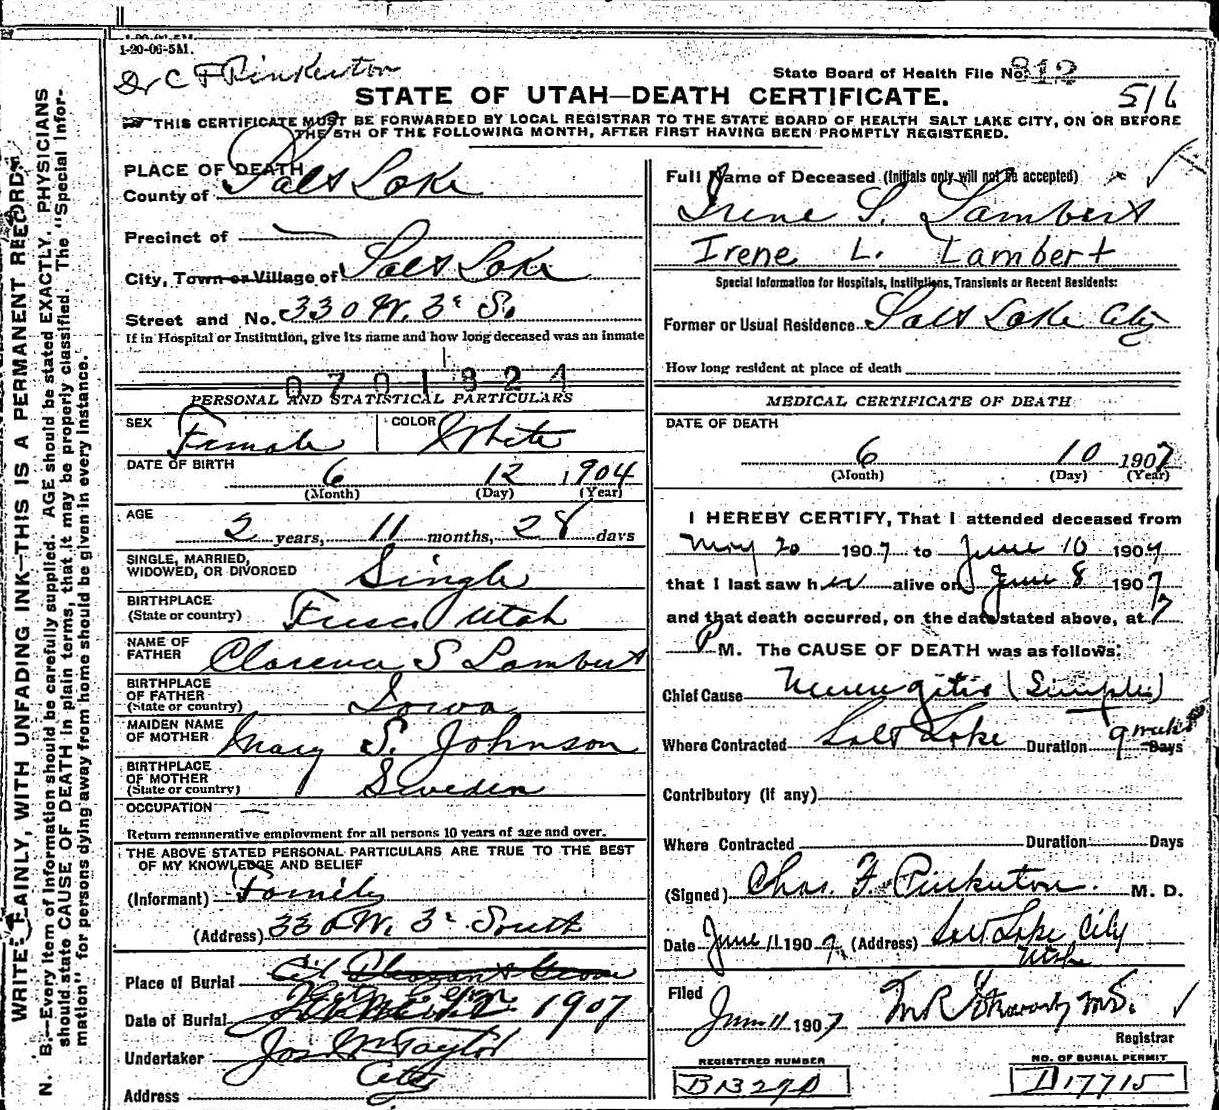 1-20-06-5M.
Dr C F Pinkerton
State Board of Health File No. 312
516
STATE OF UTAH—DEATH CERTIFICATE.
THIS CERTIFICATE MUST BE FORWARDED BY LOCAL REGISTRAR TO THE STATE BOARD OF HEALTH SALT LAKE CITY, ON OR BEFORE
THE 5TH OF THE FOLLOWING MONTH, AFTER FIRST HAVING BEEN PROMPTLY REGISTERED.
WRITE PLAINLY, WITH UNFADING INK—THIS IS A PERMANENT RECORD.
N. B.—Every item of information should be carefully supplied. AGE should be stated EXACTLY. PHYSICIANS
should state CAUSE OF DEATH in plain terms, that it may be properly classified. The "Special Infor-
mation" for persons dying away from home should be given in every instance.
PLACE OF DEATH
County of Salt Lake
Precinct of
City, Town or Village of Salt Lake
Street and No. 330 W. 3d So.
If in Hospital or Institution, give its name and how long deceased was an inmate
0701824
PERSONAL AND STATISTICAL PARTICULARS
SEX Female COLOR White
DATE OF BIRTH 6 12 1904
(Month) (Day) (Year)
AGE 2 years, 11 months, 28 days
SINGLE, MARRIED,
WIDOWED, OR DIVORCED Single
BIRTHPLACE
(State or country) Frisco Utah
NAME OF
FATHER Clarence S Lambert
BIRTHPLACE
OF FATHER
(State or country) Iowa
MAIDEN NAME
OF MOTHER Mary S. Johnson
BIRTHPLACE
OF MOTHER
(State or country) Sweden
OCCUPATION —
Return remunerative employment for all persons 10 years of age and over.
THE ABOVE STATED PERSONAL PARTICULARS ARE TRUE TO THE BEST
OF MY KNOWLEDGE AND BELIEF
(Informant) Family
(Address) 330 W. 3d South
Place of Burial City Pleasant Grove
Date of Burial 1907
Undertaker Jos Wm Taylor
City
Address
Full Name of Deceased (Initials only will not be accepted)
Irene S. Lambert
Irene L. Lambert
Special Information for Hospitals, Institutions, Transients or Recent Residents:
Former or Usual Residence Salt Lake City
How long resident at place of death
MEDICAL CERTIFICATE OF DEATH
DATE OF DEATH
6 10 1907
(Month) (Day) (Year)
I HEREBY CERTIFY, That I attended deceased from
May 20 1907 to June 10 1907
that I last saw her alive on June 8 1907
and that death occurred, on the date stated above, at 7
P M. The CAUSE OF DEATH was as follows:
Chief Cause Meningitis (Simple)
Where Contracted Salt Lake Duration 9 weeks Days
Contributory (if any)
Where Contracted Duration Days
(Signed) Chas. F. Pinkerton. M. D.
Date June 11 1907 (Address) Salt Lake City
Utah
Filed
June 11 1907
Registrar
REGISTERED NUMBER
NO. OF BURIAL PERMIT
D17715